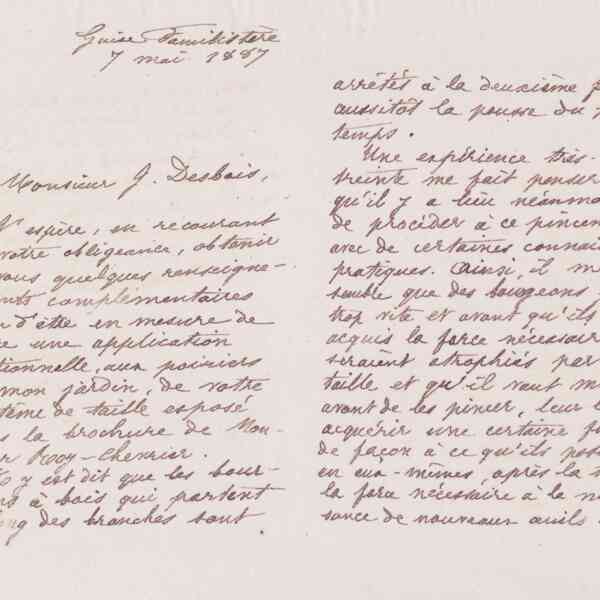 Guise Familistère
7 mai 1887
Monsieur J. Desbois,
J'espère, en recourant
votre obligeance, obtenir
vous quelques renseigne-
nts complémentaires
d'être en mesure de
une application
tionnelle, aux poiriers
mon jardin, de votre
tème de taille exposé
s la brochure de Mon-
r Roy-Chevrier.
y est dit que les bour-
à bois qui partent
ong des branches sont
arrêtés à la deuxième f
aussitôt la pousse du
temps.
Une expérience très-
treinte me fait penser
qu'il y a lieu néanmo
de procéder à ce pincem
avec de certaines connai
pratiques. Ainsi, il m
semble que des bourgeons
trop vite et avant qu'ils
acquis la force nécessair
seraient atrophiés par
taille et qu'il vaut m
avant de les pincer, leur l
acquérir une certaine fo
de façon à ce qu'ils poss
en eux-mêmes, après la t
la force nécessaire à la n
sance de nouveaux œils